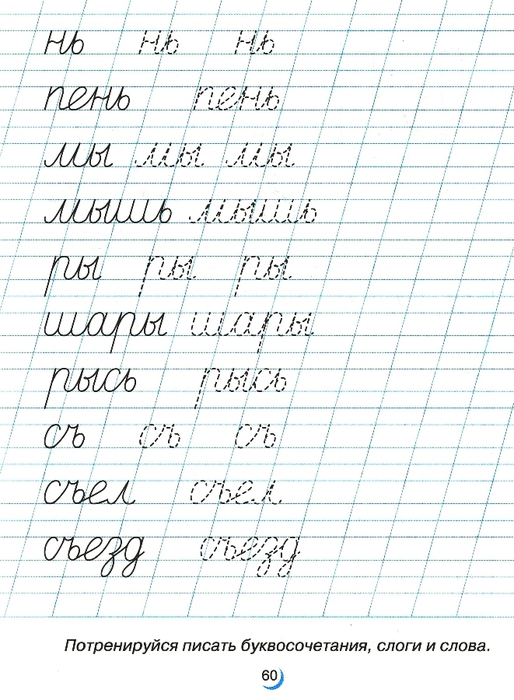 нь нь нь
пень пень
мы мы мы
мышь мышь
ры ры ры
шары шары
рысь рысь
съ съ съ
съел съел
съезд съезд
Потренируйся писать буквосочетания, слоги и слова.
60